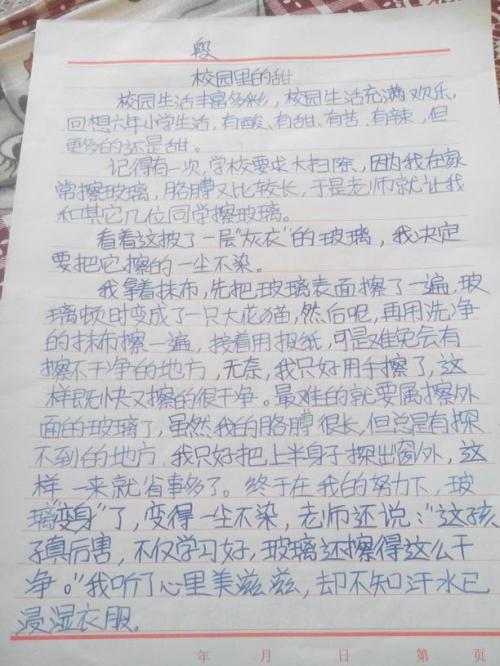 段
校园里的甜
校园生活丰富多彩，校园生活充满欢乐，
回想六年小学生活，有酸、有甜、有苦、有辣，但
更多的还是甜。
记得有一次，学校要求大扫除，因为我在家
常擦玻璃，胳膊又比较长，于是老师就让我
和其它几位同学擦玻璃。
看着这披了一层"灰衣"的玻璃，我决定
要把它擦的一尘不染。
我拿着抹布，先把玻璃表面擦了一遍，玻
璃顿时变成了一只大花猫，然后吧，再用洗净
的抹布擦一遍，接着用报纸，可是难免会有
擦不干净的地方，无奈，我只好用手擦了，这
样既快又擦的很干净。最难的就要属擦外
面的玻璃了，虽然我的胳膊很长，但总是有探
不到的地方，我只好把上半身子探出窗外，这
样一来就省事多了。终于在我的努力下，玻
璃"变身"了，变得一尘不染，老师还说："这孩
子真厉害，不仅学习好，玻璃还擦得这么干
净。"我听了心里美滋滋，却不知汗水已
浸湿衣服。
年 月 日 第 页